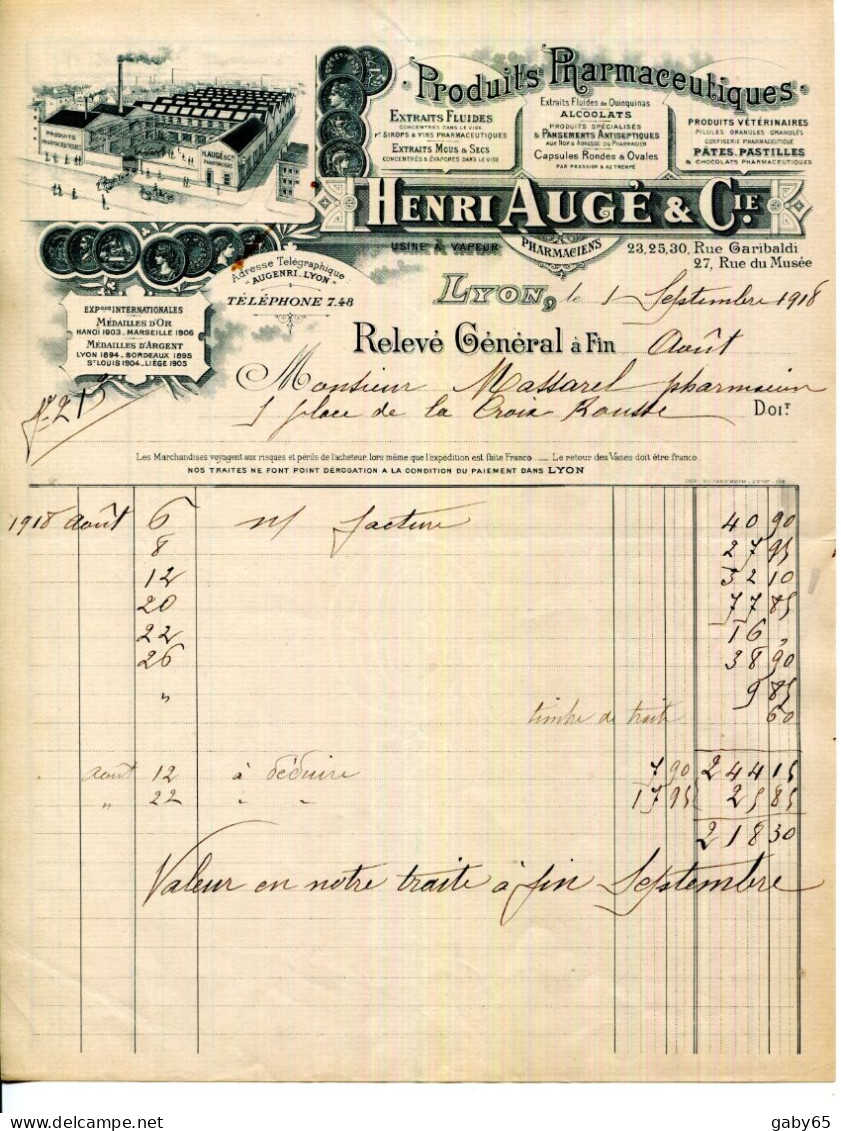 Produits Pharmaceutiques
PRODUITS
PHARMACEUTIQUES
H. AUGÉ & Cie
EXTRAITS FLUIDES
CONCENTRÉS DANS LE VIDE
Pr SIROPS & VINS PHARMACEUTIQUES
EXTRAITS MOUS & SECS
CONCENTRÉS & ÉVAPORÉS DANS LE VIDE
Extraits Fluides de Quinquinas
ALCOOLATS
PRODUITS SPÉCIALISÉS
& PANSEMENTS ANTISEPTIQUES
AUX NOM & ADRESSE DU PHARMACIEN
Capsules Rondes & Ovales
PAR PRESSION & AU TREMPÉ
PRODUITS VÉTÉRINAIRES
PILULES GRANULES GRANULÉS
CONFISERIE PHARMACEUTIQUE
PATES, PASTILLES
& CHOCOLATS PHARMACEUTIQUES
HENRI AUGÉ & CIE.
USINE À VAPEUR
PHARMACIENS
23, 25, 30, Rue Garibaldi
27, Rue du Musée
Adresse Télégraphique
"AUGENRI. LYON"
TÉLÉPHONE 7.48
LYON, le 1 Septembre 1918
EXPons INTERNATIONALES
MÉDAILLES D'OR
HANOÏ 1903 _ MARSEILLE 1906
MÉDAILLES D'ARGENT
LYON 1894 _ BORDEAUX 1895
ST LOUIS 1904 _ LIÈGE 1905
Relevé Général à Fin Août
Monsieur Massarel pharmacien
1 place de la Croix Rousse DOIT
Les Marchandises voyagent aux risques et périls de l'acheteur, lors même que l'expédition est faite Franco. _ Le retour des Vases doit être franco.
NOS TRAITES NE FONT POINT DÉROGATION A LA CONDITION DU PAIEMENT DANS LYON
1918 Août 6 n/ facture 40 90
8 27 95
12 32 10
20 77 85
22 16 "
26 38 90
" 9 85
timbre de traite 60
Août 12 à déduire 7 90 244 15
" 22 " " 17 95 25 85
218 30
Valeur en notre traite à fin Septembre
gaby65